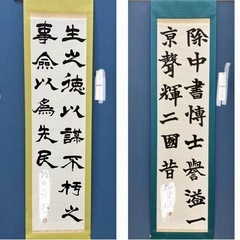 生之德以謀不朽之
事僉以為先民
除中書博士譽溢一
京聲輝二國昔